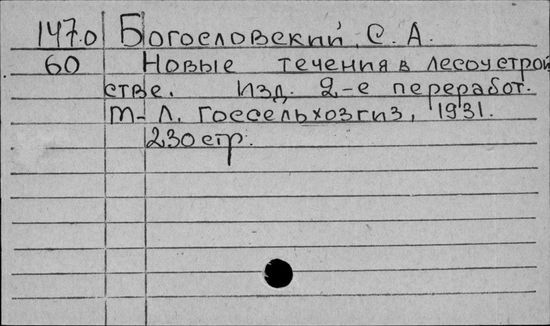 147.0 Богословский, С. А.
60 Новые течения в лесоустрой
стве. Изд. 2-е переработ.
М-Л. Госсельхозгиз, 1931.
230 стр.